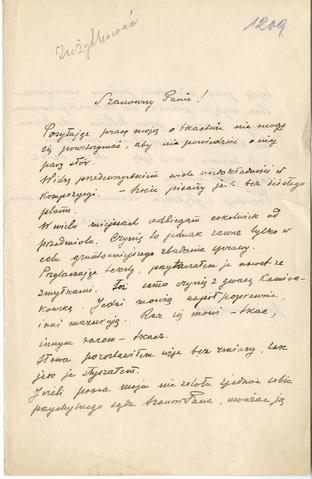 1209
Zużytkować
Szanowny Panie!
Posyłając pracę moją o tkactwie nie mogę
się powstrzymać, aby nie powiedzieć o niej
parę słów.
Widzę przedewszystkiem wiele niedokładności w
kompozycji. – Szkic pisany jest bez ścisłego
planu.
W wielu miejscach odbiegam cokolwiek od
przedmiotu. Czynię to jednak zawsze tylko w
celu gruntowniejszego zbadania sprawy.
Przytaczając teksty, przytaczałem je nawet ze
zmyłkami. Toż samo czynię z gwarą Kamion-
kowską. Jedni mówią napół poprawnie
inni mazurują. Raz się mówi – tkac,
innym razem – tkacz.
Słowa pozostawiłem więc bez zmiany, tak
jak je słyszałem.
Jeżeli praca moja nie zdoła zjednać sobie
przychylnego sądu Szanow. Pana, uważać ją